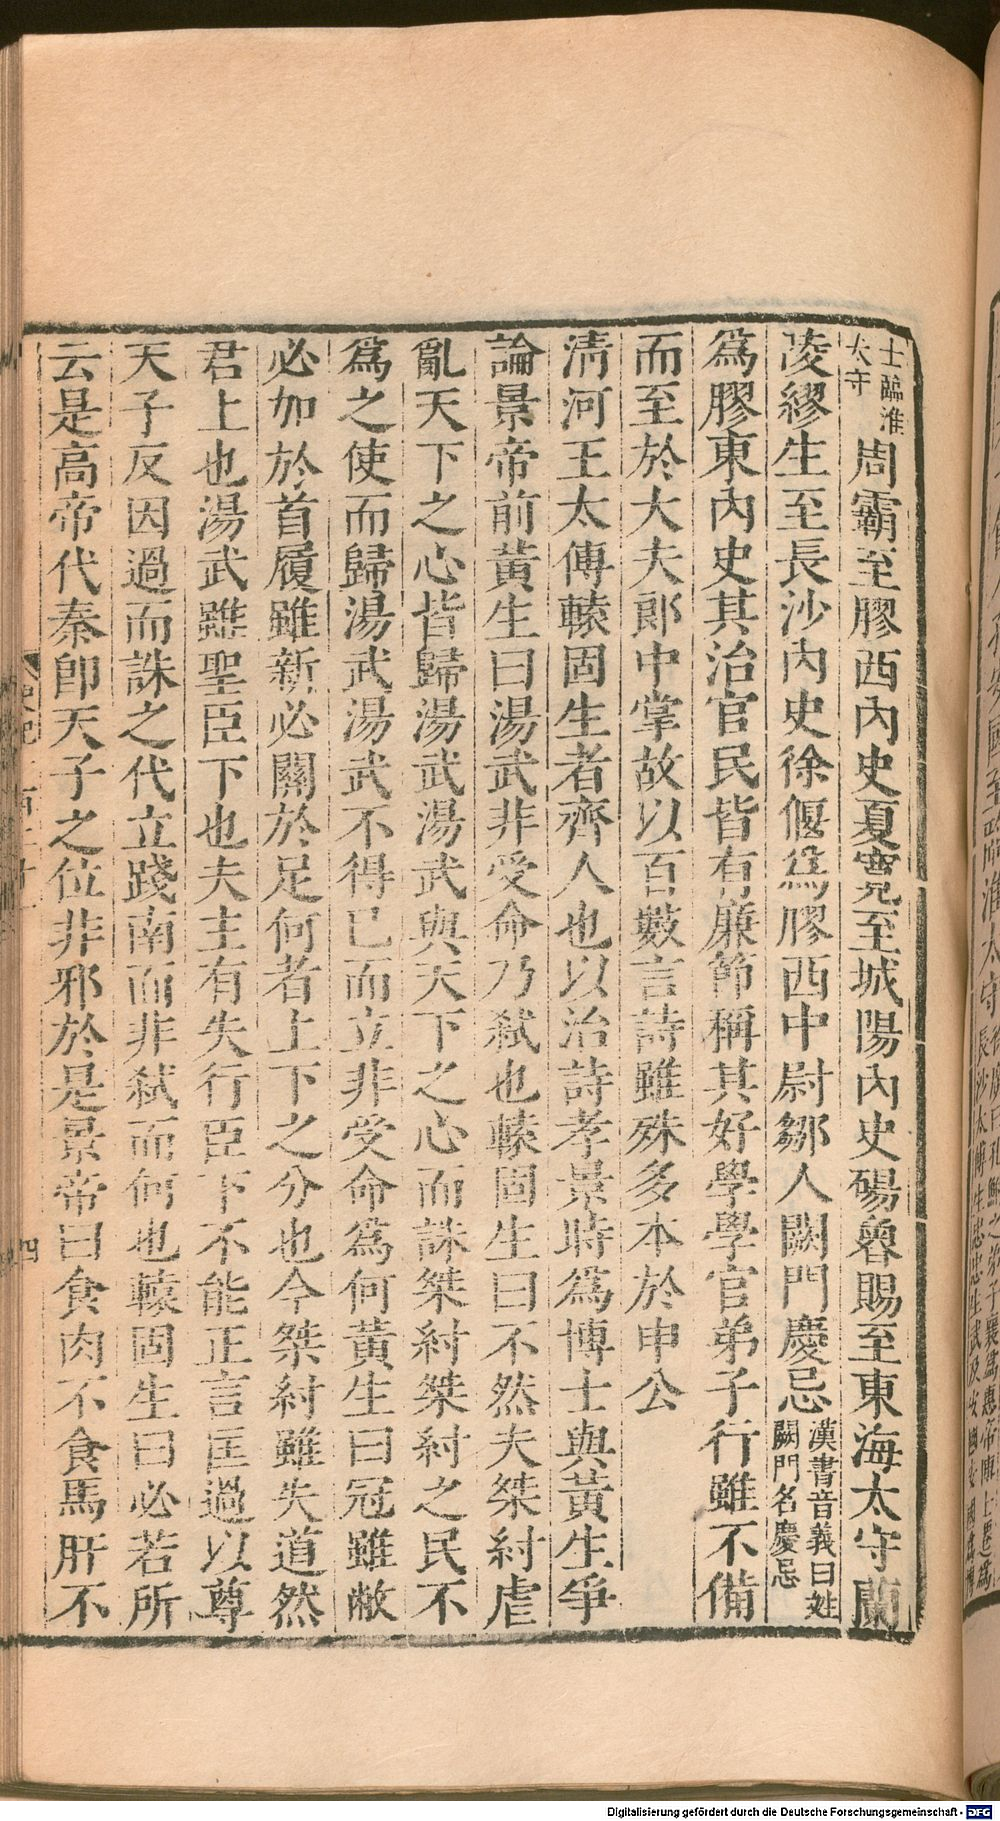 士臨淮太守周霸至膠西內史夏寬至城陽內史碭魯賜至東海太守蘭
陵繆生至長沙內史徐偃爲膠西中尉鄒人闕門慶忌漢書音義曰姓闕門名慶忌
爲膠東內史其治官民皆有廉節稱其好學學官弟子行雖不備
而至於大夫郎中掌故以百數言詩雖殊多本於申公
淸河王太傅轅固生者齊人也以治詩孝景時爲博士與黃生爭
論景帝前黃生曰湯武非受命乃弑也轅固生曰不然夫桀紂虐
亂天下之心皆歸湯武湯武與天下之心而誅桀紂桀紂之民不
爲之使而歸湯武湯武不得已而立非受命爲何黃生曰冠雖敝
必加於首履雖新必關於足何者上下之分也今桀紂雖失道然
君上也湯武雖聖臣下也夫主有失行臣下不能正言匡過以尊
天子反因過而誅之代立踐南面非弑而何也轅固生曰必若所
云是高帝代秦卽天子之位非邪於是景帝曰食肉不食馬肝不
史記一百二十一
四
Digitalisierung gefördert durch die Deutsche Forschungsgemeinschaft - DFG